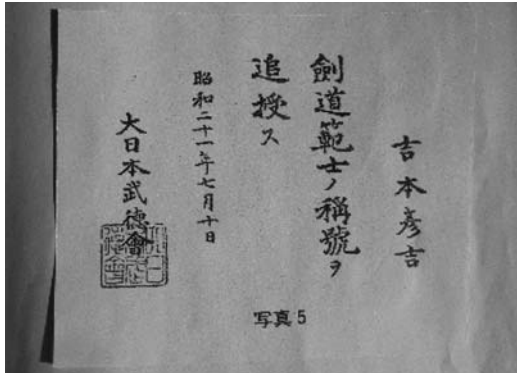 吉本彦吉
劍道範士ノ稱號ヲ
追授ス
昭和二十一年七月十日
大日本武德會
写真5